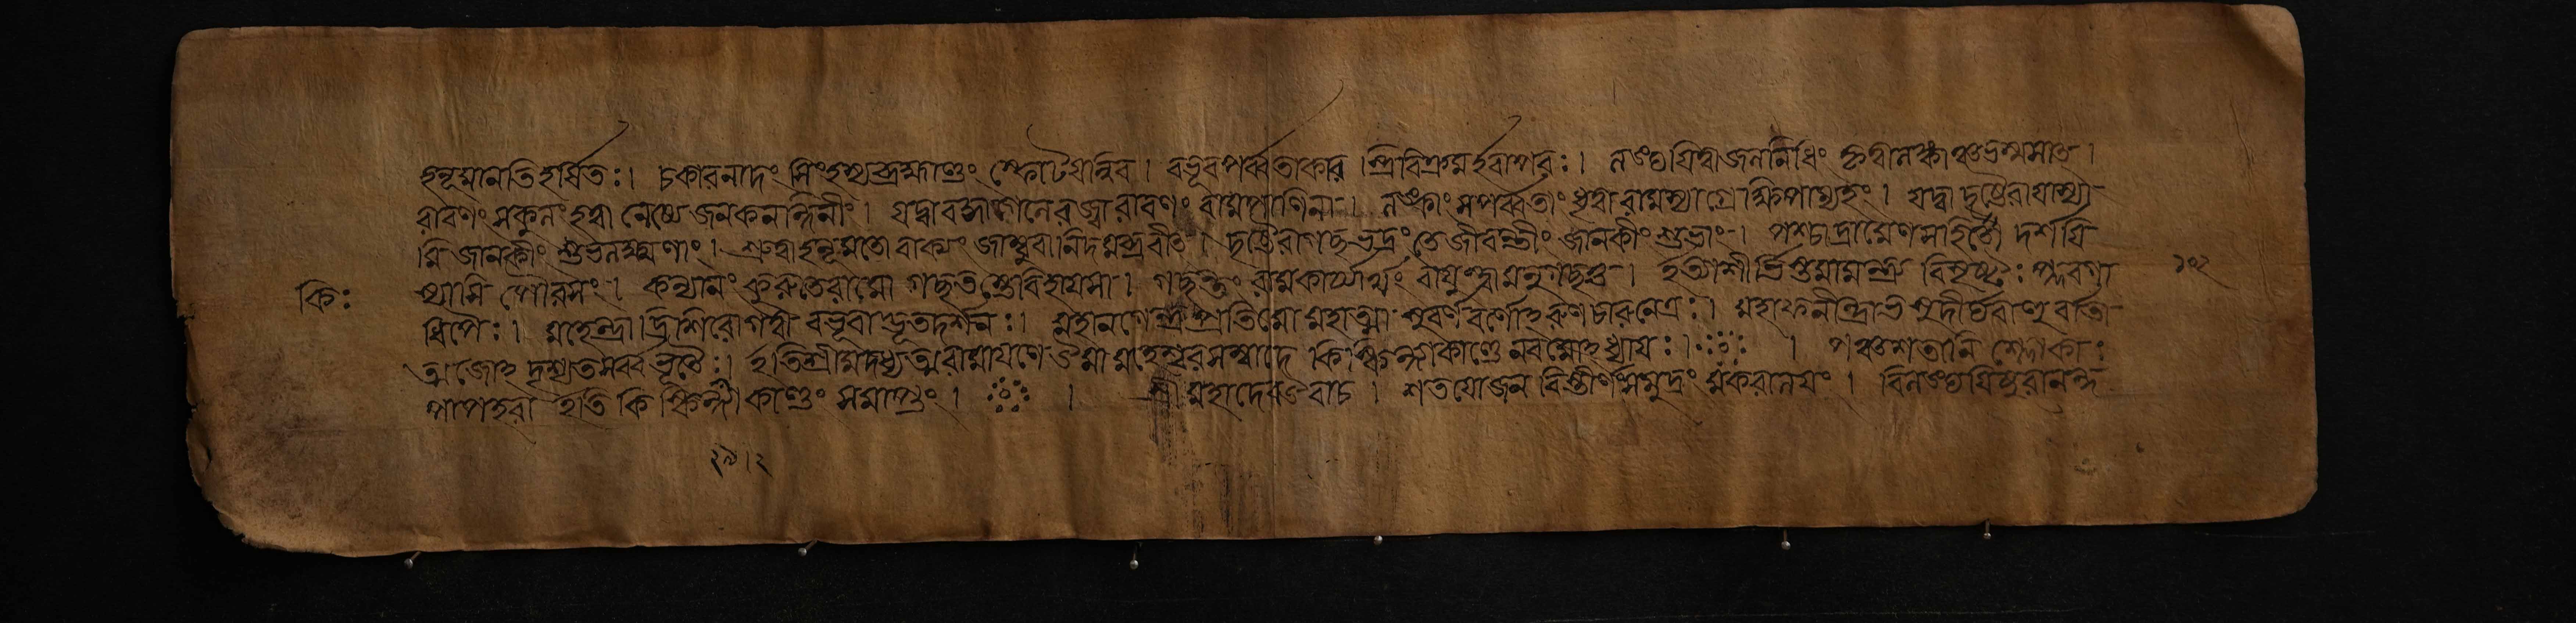 হনূমানতিহর্ষিতঃ। চকারনাদং সিংহস্যব্রহ্মাণ্ডং স্ফোটয়ন্নিব। বভূবপর্ব্বতাকার স্ত্রিবিক্রমইবাপরঃ। লঙ্ঘয়িত্বাজলনিধিং কৃত্বালঙ্কাঞ্চভস্মসাৎ।
রাবণং সকুলং হত্বা নেষ্যে জনকনন্দিনীং। যদ্বা বদ্ধাগলেরজ্জ্বারাবণং বামপাণিনা। লঙ্কাং সপর্ব্বতাং ধৃত্বারামস্যাগ্রে ক্ষিপাম্যহং। যদ্বা দৃষ্ট্বৈবায়াস্যা
মি জানকীং শুভলক্ষ্মণাং। শ্রুত্বাহনূমতো বাক্যং জাম্ববানিদমব্রবীৎ। দৃষ্ট্বৈবাগচ্ছভদ্রং তেজীবন্তীং জানকীং শুভাং। পশ্চাদ্রামেণসহিতো দর্শয়ি
কিঃ ষ্যসি পৌরুষং। কল্যাণং কুরুতেরামো গচ্ছতস্তেবিহায়সা। গচ্ছন্তং রামকার্য্যার্থং বায়ুস্ত্বামনুগচ্ছতু। ইত্যাশীর্ভিঃ সমামন্ত্র্য বিসৃষ্টঃ প্লবগা ১০২
ধিপৈঃ। মহেন্দ্রাদ্রিশিরোগত্বা বভূবাদ্ভূতদর্শনঃ। মহানগেন্দ্রপ্রতিমো মহাত্মা সুবর্ণবর্ণোঽরুণচারুনেত্রঃ। মহাফনীন্দ্রাভসুদীর্ঘবাহুর্বাতা
ত্মজোঽদৃশ্যতসর্ব্বভূতৈঃ। ইতিশ্রীমদধ্যাত্মরামায়ণে উমামহেশ্বরসম্বাদে কিষ্কিন্ধ্যাকাণ্ডে নবমোঽধ্যায়ঃ। । পঞ্চশতানি শ্লোকাঃ
পাপহরা ইতি কিষ্কিন্ধ্যাকাণ্ডং সমাপ্তং। । শ্রীমহাদেবউবাচ। শতযোজন বিস্তীর্ণংসমুদ্রং মকরালয়ং। বিলঙ্ঘয়িষুরানন্দ